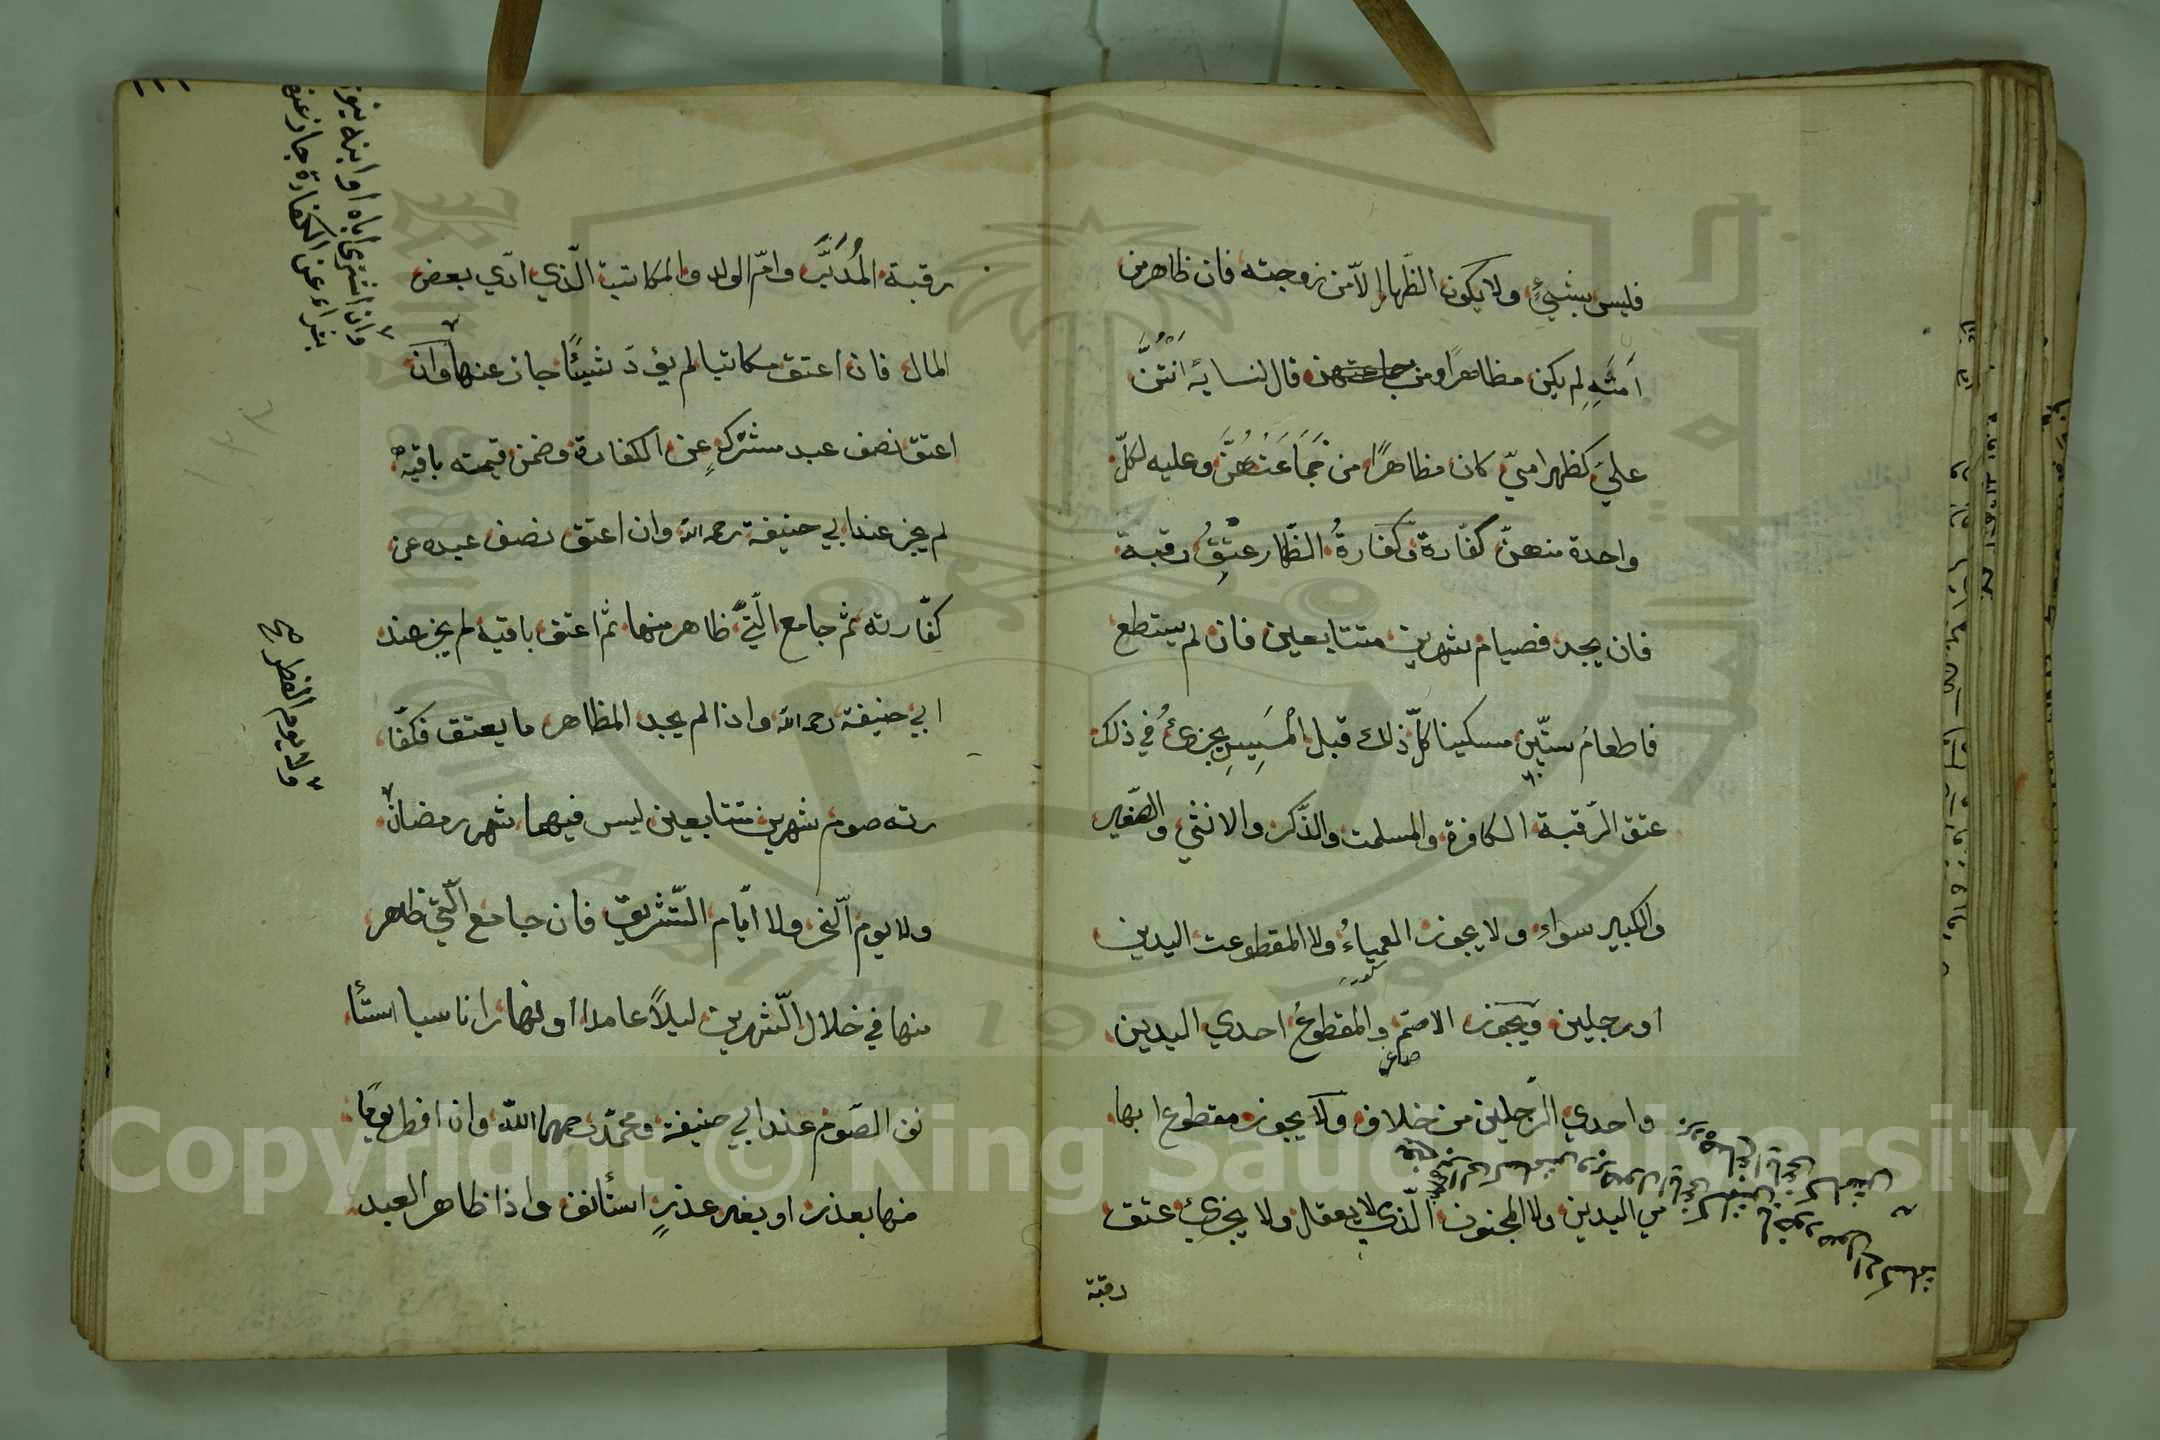 فليس بشيءٍ ولا يكون الظهار الّا من زوجته فان ظاهر من
اَمَتَهِ لم يكن مظاهرًا ومن قال لنسايه اَنْتُنَّ
عليَّ كظهر امّيّ كان مظاهرًا من جَمَاعَتْهُنَّ وعليه لكلّ
واحدة منهنّ كفّارة وكفّارةُ الظّهار عتْقُ رقبة
فان يجد فصيام شهرين متتابعين فان لم يستطع
فاطعامُ ستّين مسكينا كلّ ذلك قبل الْمَسِيسِ يجزئُ في ذلك
عتق الرّقبة الكافرة والمسلمت والذّكر والانثي والصّغير
والكبير سواءٍ ولا يجوز العمياءُ ولا المقطوعت اليدين
او رجلين ويجوز الاصمّ والمقطوعُ احدي اليدين
واحدي الرّجلين من خلاف ولا يجوز مقطوع ابها
مي اليدين ولا المجنون الّذي لا يعقل ولا يجزئ عتق
رقبة
رقبة المُدَبَّ وامّ الولد والمكاتبة الّذي ادّي بعض
المال فان اعتق مكاتبا لم يؤدّ شيئًا جاز عنها وان
اعتق نصف عبد مشتركٍ عن الكفارة وضمن قيمته باقيه
لم يجز عند ابي حنيفة رحمه الله وان اعتق نصف عبده عن
كفّارته ثم جامع الّتي ظاهر منها ثم اعتق باقيه لم يجز عند
ابي حنيفة رحمه الله واذا لم يجد المظاهر ما يعتق فكفّا
رته صوم شهرين متتابعين ليس فيهما شهر رمضان
ولا يوم النّحر ولا ايّام التّشريق فان جامع الّتي ظاهر
منها في خلال الشّهرين ليلاً عامدا او نهارا ناسيا استأ
نف الصّوم عند ابي حنيفة ومحمّد رحمهما الله وان افطر يومًا
منها بعذر او بغير عذرٍ استأنف واذا ظاهر العبد
وان اشتري اباه او ابنه ينو
بشراء عن الكفارة جاز عنه
ولا يوم الفطر صح
Copyright © King Saud University
King Saud University
جامعة الملك سعود
1957